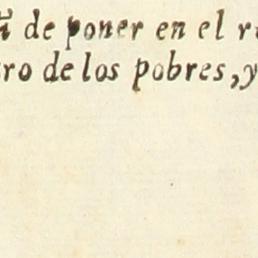 de poner en el
ro de los pobres, y